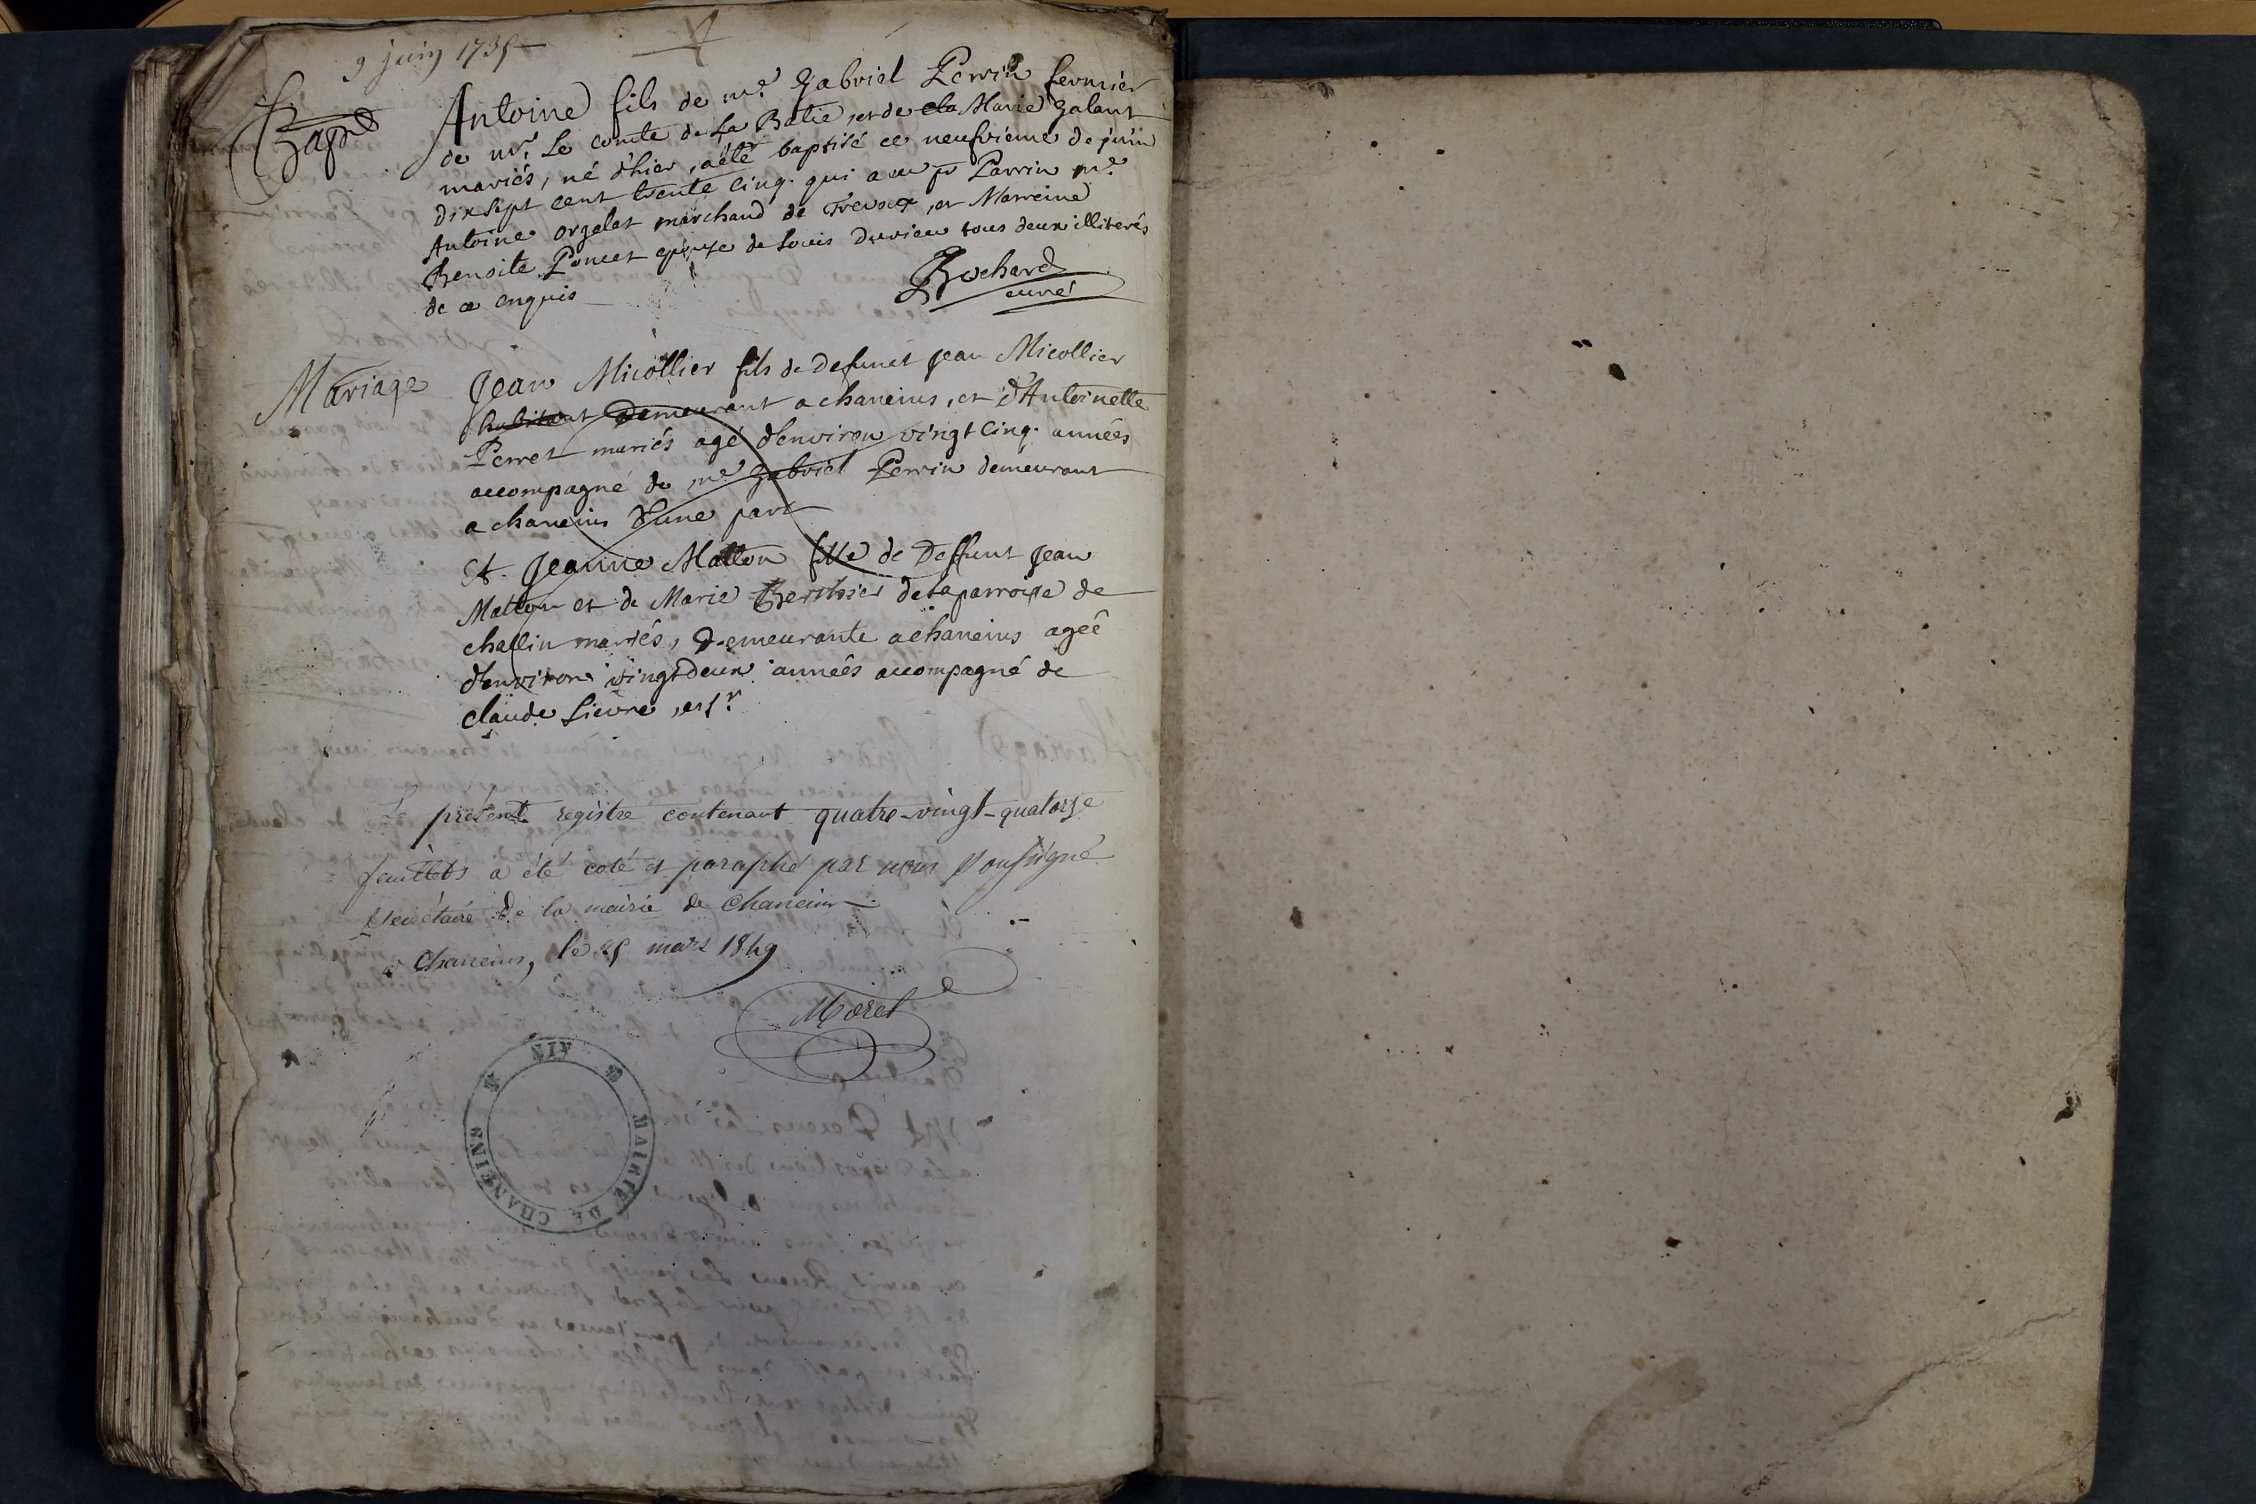 9 juin 1735
Bapt
Antoine fils de me. Gabriel Perrin fermier
de mr. Le comte de La Batie, et de cla Marie Galant
mariés, né d'hier, a été baptisé ce neufvieme de juin
dix sept cent trente cinq. qui a eu pr Parrin me.
Antoine orgelet marchand de Trevoux, et Marreine
Benoite Poncet epouse de Louis Duvieu tous deux illiterés
de ce enquis
Bochard
curé
Mariage
Jean Micollier fils de defunct Jean Micollier
habitant Demeurant a chaneins, et d'Antoinette
Perret mariés agé d'environ vingt cinq. années
accompagné de me. Gabriel Perrin demeurant
a chaneins d'une part
et. Jeanne Matton fille de Deffunt Jean
Matton et de Marie Berthier de la parroisse de
challin mariés, Demeurante a chaneins agée
d'environ vingt deux années accompagné de
claude Lievre, et
Le présent registre contenant quatre-vingt-quatorze
feuillets a été coté et paraphé par nous soussigné
secrétaire de la mairie de Chaneins
à Chaneins, le 25 mars 1849
Morel
AIN
MAIRIE DE CHANEINS